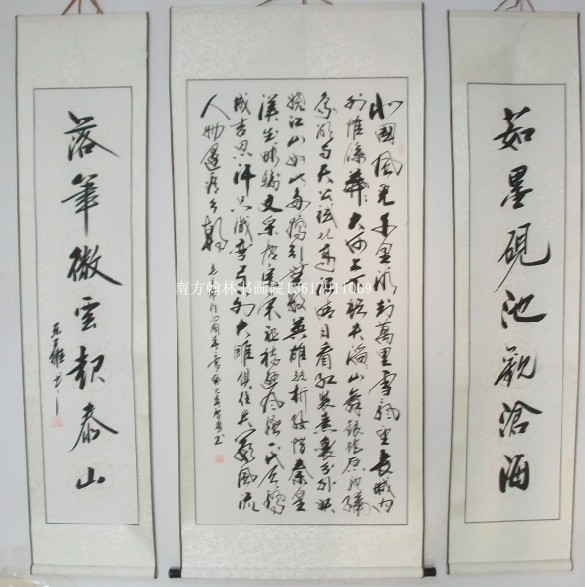 茹墨硯池觀滄海
北國風光千里冰封萬里雪飄望長城内
外惟餘莽莽大河上下頓失滔滔山舞银蛇原驰蠟
象欲与天公試比高须晴日看红装素裹分外妖
娆江山如此多嬌引無數英雄競折腰惜秦皇
漢武略輸文采唐宗宋祖稍遜風骚一代天驕
成吉思汗只識彎弓射大雕俱往矣數風流
人物還看今朝
落筆微雲起泰山
南方翰林书画院13617911009